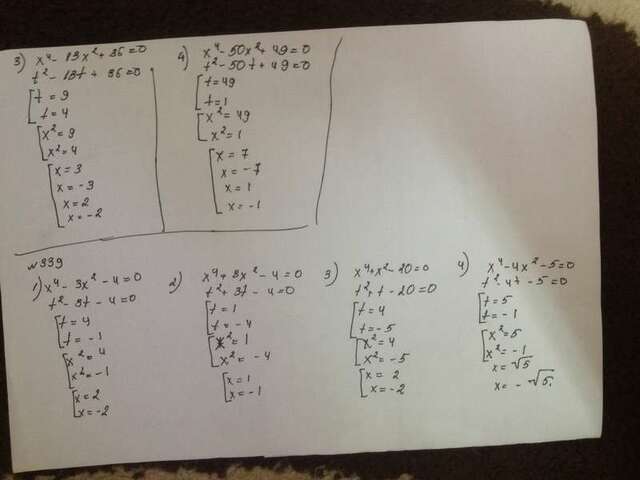 3) x⁴ - 13x² + 36 = 0
t² - 13t + 36 = 0
[t = 9
t = 4
[x² = 9
x² = 4
[x = 3
x = -3
x = 2
x = -2
4) x⁴ - 50x² + 49 = 0
t² - 50t + 49 = 0
[t = 49
t = 1
[x² = 49
x² = 1
[x = 7
x = -7
x = 1
x = -1
№339
1) x⁴ - 3x² - 4 = 0
t² - 3t - 4 = 0
[t = 4
t = -1
[x² = 4
x² = -1
[x = 2
x = -2
2) x⁴ + 3x² - 4 = 0
t² + 3t - 4 = 0
[t = 1
t = -4
[x² = 1
x² = -4
[x = 1
x = -1
3) x⁴ + x² - 20 = 0
t² + t - 20 = 0
[t = 4
t = -5
[x² = 4
x² = -5
[x = 2
x = -2
4) x⁴ - 4x² - 5 = 0
t² - 4t - 5 = 0
[t = 5
t = -1
[x² = 5
x² = -1
x = √5
x = -√5